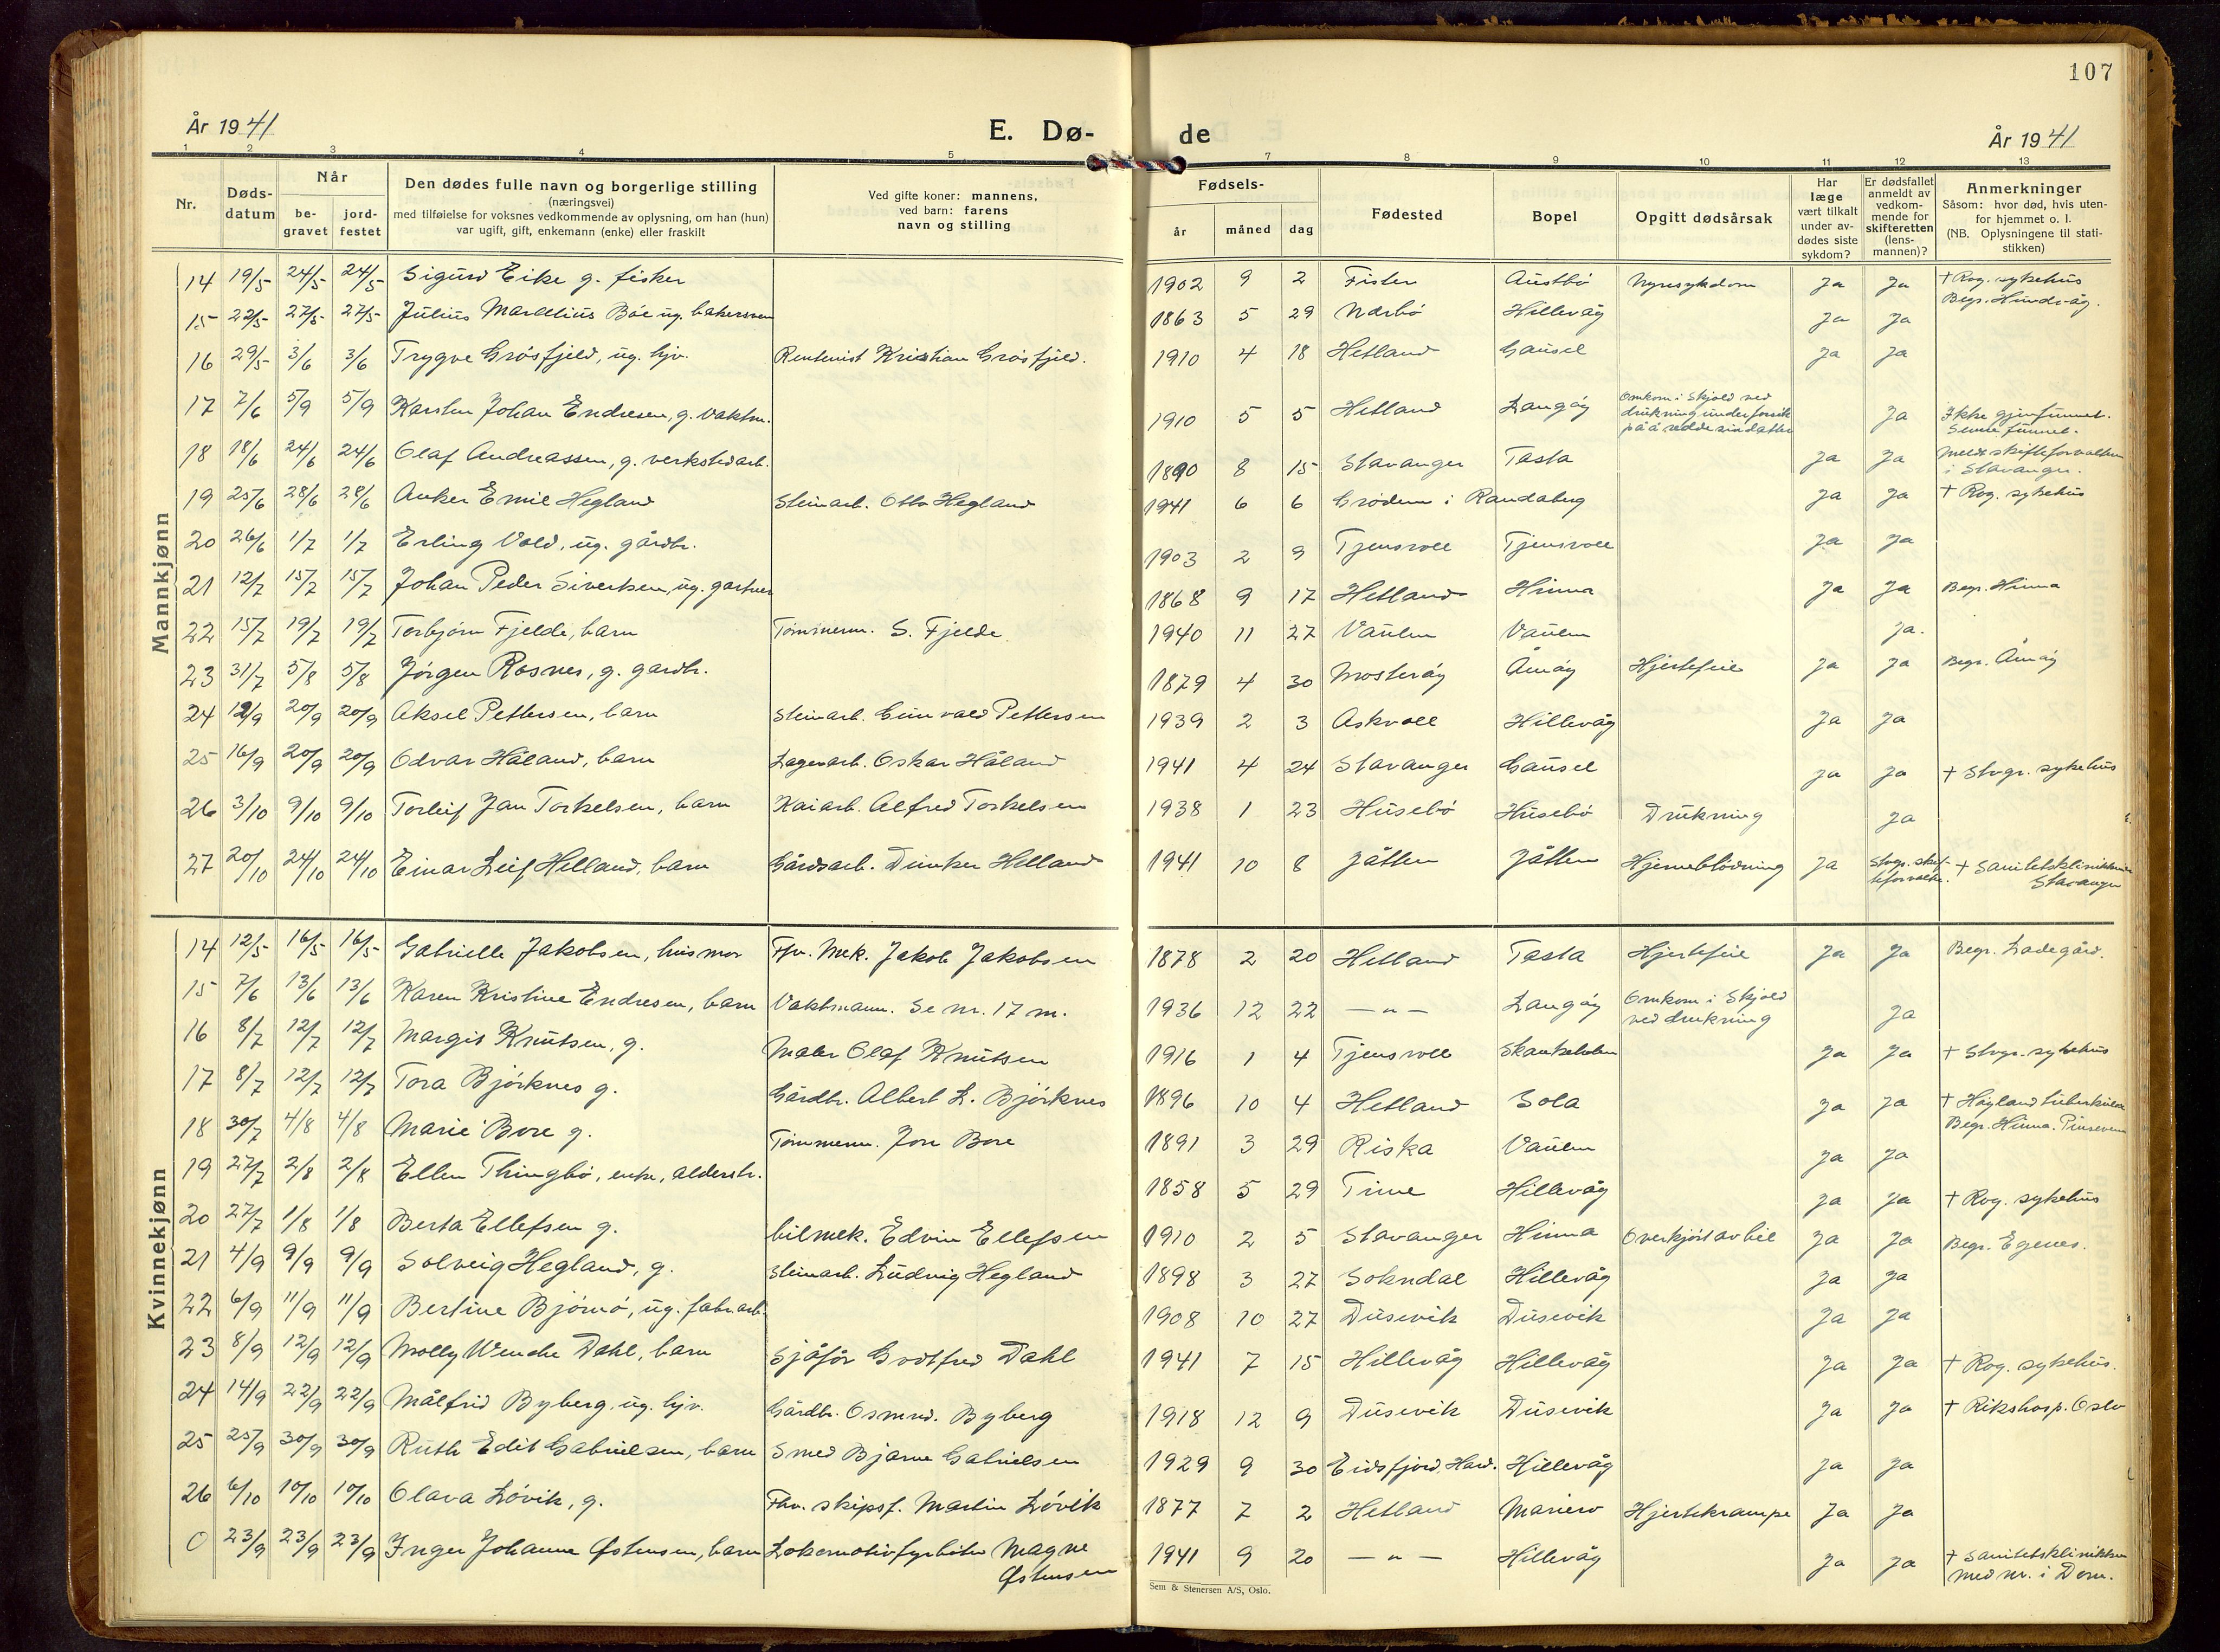 107
År 1941
E. Dø-
de
År 1941
1 2 3 4 5 7 8 9 10 11 12 13
Nr.
Døds-
datum
Når
be-
gravet
jord-
festet
Den dødes fulle navn og borgerlige stilling
(næringsvei)
med tilføielse for voksnes vedkommende av oplysning, om han (hun)
var ugift, gift, enkemann (enke) eller fraskilt
Ved gifte koner: mannens,
ved barn: farens
navn og stilling
Fødsels-
år måned dag
Fødested
Bopel
Opgitt dødsårsak
Har
læge
vært tilkalt
under av-
dødes siste
sykdom?
Er dødsfallet
anmeldt av
vedkom-
mende for
skifteretten
(lens-
mannen)?
Anmerkninger
Såsom: hvor død, hvis uten-
for hjemmet o. l.
(NB. Oplysningene til stati-
stikken)
Mannkjønn
14 19/5 24/5 24/5 Sigurd Eike g. fisker 1902 9 2 Fister Austbø Nyresykdom Ja Ja + Rog. sykehus
Begr. Hundvåg.
15 22/5 27/5 27/5 Julius Marselius Bøe ug. bakersvenn 1863 5 29 Nærbø Hillevåg Ja Ja
16 29/5 3/6 3/6 Trygve Grøsfjeld, ug. hjv. Rentenist Kristian Grøsfjeld. 1910 4 18 Hetland Gausel Ja Ja
17 7/6 5/9 5/9 Karsten Johan Endresen, g. vaktm. 1910 5 5 Hetland Langøy Omkom i Skjold ved
drukning under forsøk
på å redde sin datter Ja Ikke gjenfunnet.
Senere funnet.
18 18/6 24/6 24/6 Olaf Andreassen, g. verkstedarb. 1890 8 15 Stavanger Tasta Ja Ja Meldt skifteforvalteren
i Stavanger.
19 25/6 28/6 28/6 Anker Emil Hegland Steinarb. Otto Hegland 1941 6 6 Grødem i Randaberg Ja Ja + Rog. sykehus
20 26/6 1/7 1/7 Erling Vold, ug. gårdbr. 1903 2 9 Tjensvoll Tjensvoll Ja Ja
21 12/7 15/7 15/7 Johan Peder Sivertsen, ug. gartner 1868 9 17 Hetland Hinna Ja Ja Begr. Hinna
22 15/7 19/7 19/7 Torbjørn Fjelde, barn Tømmerm. S. Fjelde 1940 11 27 Vaulen Vaulen Ja.
23 31/7 5/8 5/8 Jørgen Rosnes, g. gardbr. 1879 4 30 Mosterøy Åmøy Hjertefeil Ja Ja Begr. Åmøy
24 12/9 20/9 20/9 Aksel Pettersen, barn Steinarb. Gunvald Pettersen 1939 2 3 Askvoll Hillevåg Ja Ja
25 16/9 20/9 20/9 Odvar Håland, barn Lagerarb. Oskar Håland 1941 4 24 Stavanger Gausel Ja Ja + Stvgr. sykehus
26 3/10 9/10 9/10 Torleif Jan Torkelsen, barn Kaiarb. Alfred Torkelsen 1938 1 23 Husebø Husebø Drukning Ja
27 20/10 24/10 24/10 Einar Leif Helland, barn Gårdsarb. Dunker Helland 1941 10 8 Jåtten Jåtten Hjerneblødning Ja Stvgr. skif-
teforvalter. + Sanitetsklinikken
Stavanger
Kvinnekjønn
14 12/5 16/5 16/5 Gabrielle Jakobsen, husmor Fhv. Mek. Jakob Jakobsen 1878 2 20 Hetland Tasta Hjertefeil Ja Ja Begr. Ladegård.
15 7/6 13/6 13/6 Karen Kristine Endresen, barn Vaktmann. Se nr. 17 m. 1936 12 22 — " — Langøy Omkom i Skjold
ved drukning Ja
16 8/7 12/7 12/7 Margit Knutsen, g. Maler Olaf Knutsen 1916 1 4 Tjensvoll Skankeholen Ja Ja + Stvgr. sykehus
17 8/7 12/7 12/7 Tora Bjørknes g. Gårdbr. Albert L. Bjørknes 1896 10 4 Hetland Sola Ja Ja + Høyland tuberkulose
18 30/7 4/8 4/8 Marie Bore g. Tømmerm. Jon Bore 1891 3 29 Riska Vaulen Ja Ja Begr. Hinna. Pinsevenn
19 27/7 2/8 2/8 Ellen Thingbø, enke, alderstr. 1858 5 29 Time Hillevåg Ja Ja + Rog. sykehus
20 27/7 1/8 1/8 Berta Ellefsen g. bilmek. Edvin Ellefsen 1910 2 5 Stavanger Hinna Overkjørt av bil Ja Ja Begr. Egenes.
21 4/9 9/9 9/9 Solveig Hegland, g. Steinarb. Ludvig Hegland 1898 3 27 Sokndal Hillevåg Ja Ja
22 6/9 11/9 11/9 Bertine Bjørnø, ug. fabr.arb. 1908 10 27 Dusevik Dusevik Ja Ja
23 8/9 12/9 12/9 Molly Wenche Dahl, barn Sjåfør Godtfred Dahl 1941 7 15 Hillevåg Hillevåg Ja Ja + Rog. sykehus.
24 14/9 22/9 22/9 Målfrid Byberg, ug. hjv. Gårdbr. Osmnd. Byberg 1918 12 9 Dusevik Dusevik Ja Ja + Rikshosp. Oslo
25 25/9 30/9 30/9 Ruth Edit Gabrielsen, barn Smed Bjarne Gabrielsen 1929 9 30 Eidsfjord, Hard. Hillevåg Ja Ja
26 6/10 10/10 10/10 Olava Løvik, g. Fhv. skipsf. Martin Løvik 1877 7 2 Hetland Mariero Hjertekrampe Ja Ja
0 23/9 23/9 23/9 Inger Johanne Østensen, barn Lokomotivfyrbøter Magne
Østensen 1941 9 20 — " — Hillevåg Ja Ja + Sanitetsklinikken
med nr. i Dom.
Sem & Stenersen A/S, Oslo.